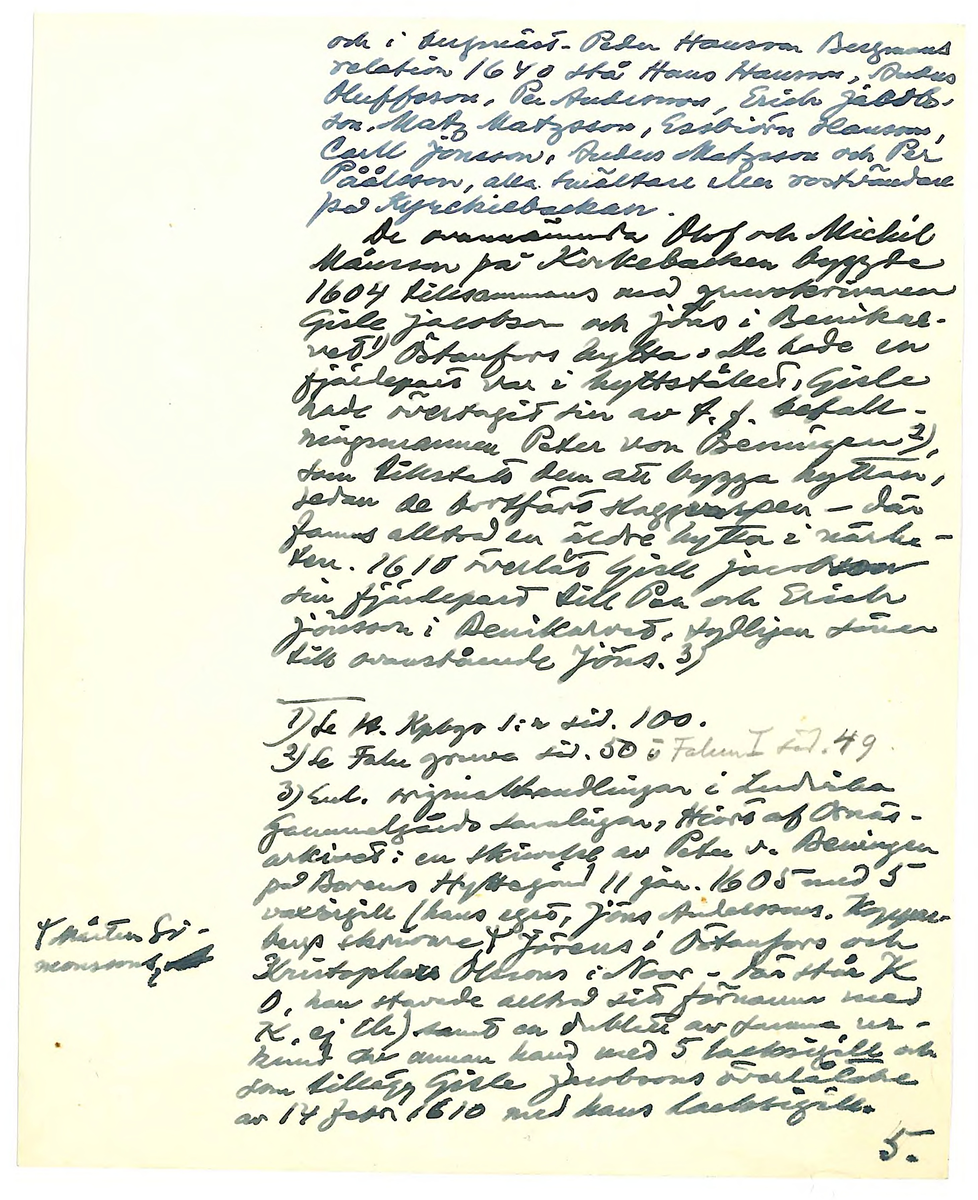 och i bergmäst. Peder Hansson Bergmans
relation 1640 stå Hans Hansson, Anders
Oluffsson, Per Andersson, Erich Jacob-
son, Matz Matzsson, Essbiörn Hansson,
Carll Jönsson, Anders Matzsson och Per
Påålsson, alla smältare eller rostvändare
på Kyrckiebackan.
De ovannämnda Olof och Michil
Månsson på Kirkebacken byggde
1604 tillsammans med gruvskrivaren
Gisle Jacobson och Jöns i Benikar-
vet1) Östanfors hytta. De hade en
fjärdepart var i hyttstället, Gisle
hade övertagit sin av f. d. befall-
ningsmannen Peter von Beningen2),
som tillstatt dem att bygga hyttan,
sedan de bortfört slaggvarpen - där
fanns alltså en äldre hytta i närhe-
ten. 1610 överlät Gisle Jacobson
sin fjärdepart till Per och Erich
Jönsson i Benikarvet, tydligen söner
till ovanstående Jöns. 3)
1) Se H. Kpbgs l:r sid. 100.
2) Se Falu gruva sid. 50 o Falun I sid. 49.
3) Enl. originalhandlingar i Ludvika
Gammelgårds samlingar, Hiärt af Ornäs-
arkivet: en skrivelse av Peter v. Beningen
på Borens Hyttegård 11 jan. 1605 med 5
vaxsigill (hans eget, Jöns Anderssons, Koppar-
bergs skrivare, ⌃ Jörens i Östanfors och
Kristophers Olssons i Noor - där står K
O, han stavade alltså sitt förnamn med
K, ej Ch) samt en dublett av samma ur-
kund av annan hand med 5 lacksigill och
som tillägg Gisle Jacobsons överlåtelse
av 14 febr 1610 med hans lacksigill.
⌃ Mårten Si-
monssons,
5.